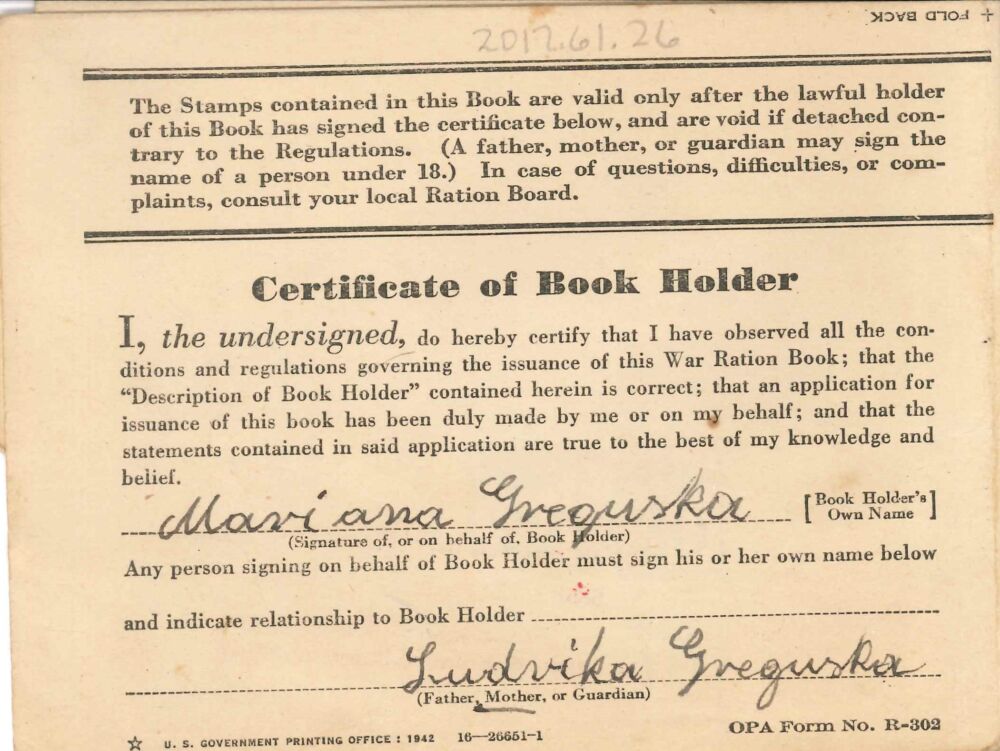 + FOLD BACK
2012.61.26
The Stamps contained in this Book are valid only after the lawful holder
of this Book has signed the certificate below, and are void if detached con-
trary to the Regulations. (A father, mother, or guardian may sign the
name of a person under 18.) In case of questions, difficulties, or com-
plaints, consult your local Ration Board.
Certificate of Book Holder
I, the undersigned, do hereby certify that I have observed all the con-
ditions and regulations governing the issuance of this War Ration Book; that the
“Description of Book Holder” contained herein is correct; that an application for
issuance of this book has been duly made by me or on my behalf; and that the
statements contained in said application are true to the best of my knowledge and
belief.
Mariana Greguska [Book Holder's
Own Name]
(Signature of, or on behalf of, Book Holder)
Any person signing on behalf of Book Holder must sign his or her own name below
and indicate relationship to Book Holder
Ludvika Greguska
(Father, Mother, or Guardian)
☆ U. S. GOVERNMENT PRINTING OFFICE : 1942 16—26651-1 OPA Form No. R-302